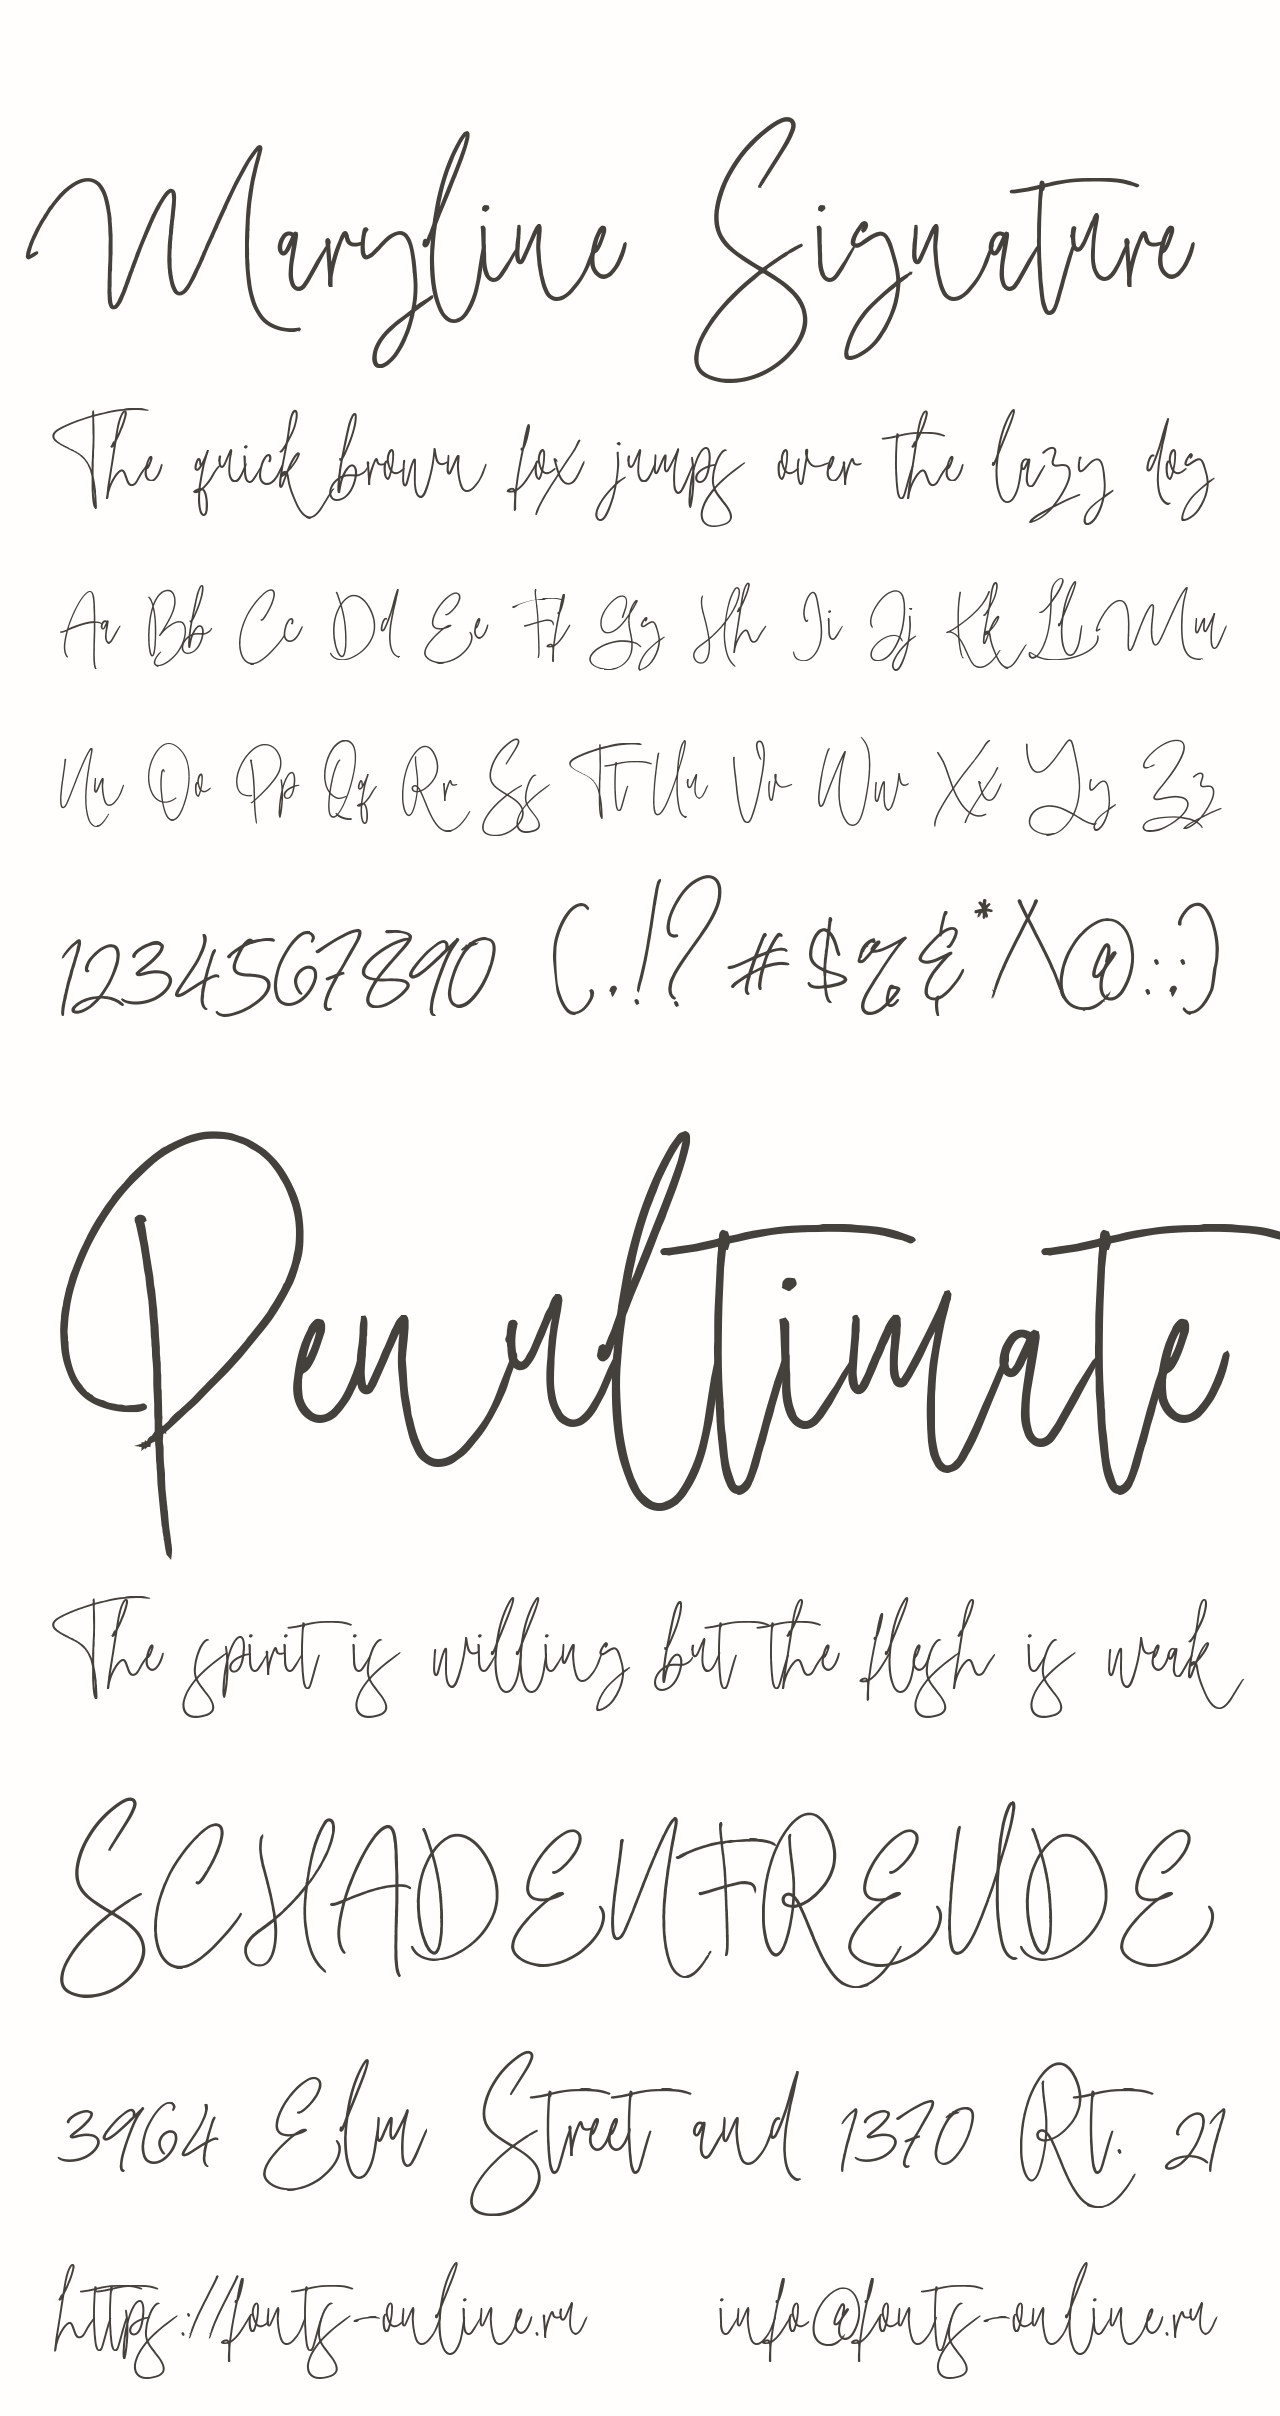 Maryline Signature
The quick brown fox jumps over the lazy dog
Aa Bb Cc Dd Ee Ff Gg Hh Ii Jj Kk Ll Mm
Nn Oo Pp Qq Rr Ss Tt Uu Vv Ww Xx Yy Zz
1234567890 (.,!? #$%&*^@:;)
Penultimate
The spirit is willing but the flesh is weak
SCHADENFREUDE
3964 Elm Street and 1370 Rt. 21
https://fonts-online.ru info@fonts-online.ru